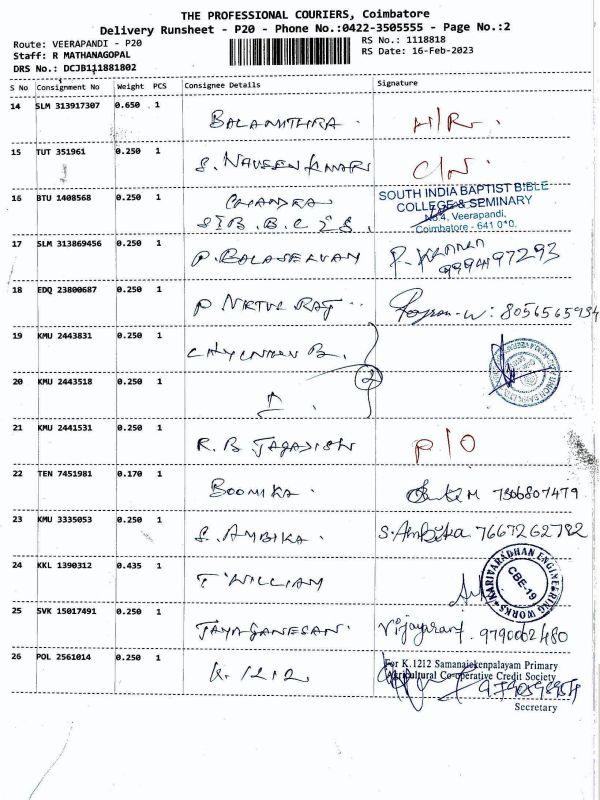 THE PROFESSIONAL COURIERS, Coimbatore
Delivery Runsheet - P20 - Phone No.:0422-3505555 - Page No.:2
Route: VEERAPANDI - P20
Staff: R MATHANAGOPAL
DRS No.: DCJB111881802
RS No.: 1118818
RS Date: 16-Feb-2023
S No Consignment No Weight PCS Consignee Details Signature
14 SLM 313917307 0.650 1 BALAMITHRA. H/R.
15 TUT 351961 0.250 1 S. NAVEEN KUMAR C/N.
16 BTU 1408568 0.250 1 CHANDRA
S I B. B. C & S. SOUTH INDIA BAPTIST BIBLE
COLLEGE & SEMINARY
No.4, Veerapandi,
Coimbatore - 641 0
17 SLM 313869456 0.250 1 P. BALASELVAM P. KANNAN
9994197293
18 EDQ 23800687 0.250 1 P NITUL RAJ 8056565934
19 KMU 2443831 0.250 1 B.
20 KMU 2443518 0.250 1 2
21 KMU 2441531 0.250 1 R. B JAGADISH P/O
22 TEN 7451981 0.170 1 BOOMIKA. 7306807479
23 KMU 3335053 0.250 1 S. AMBIKA. S. Ambika 7667262782
24 KKL 1390312 0.435 1 T WILLIAM KARIVARADHAN ENGINEERING WORKS
CBE-19
25 SVK 15017491 0.250 1 JAYAGANESAN. 9790062480
26 POL 2561014 0.250 1 K. 1212 For K.1212 Samanaickenpalayam Primary
Agricultural Co-operative Credit Society
Secretary